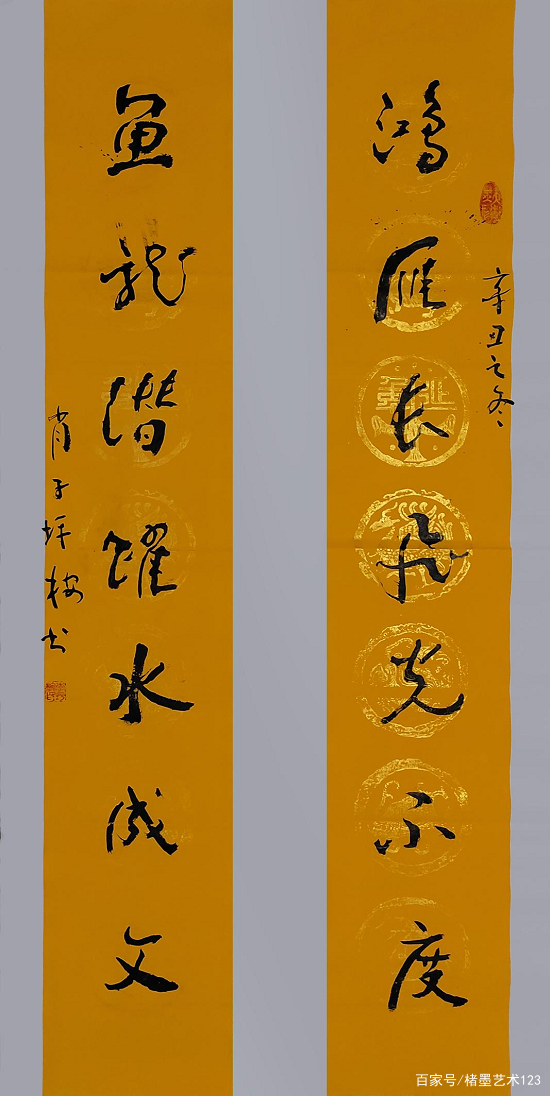 鸿雁长飞光不度
辛丑之冬
鱼龙潜跃水成文
肖子坪梅书
百家号/楮墨艺术123